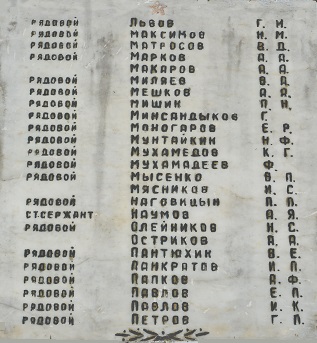 РЯДОВОЙ ЛЬВОВ Г. И.
РЯДОВОЙ МАКСИМОВ Н. М.
РЯДОВОЙ МАТРОСОВ В. Д.
РЯДОВОЙ МАРКОВ А. А.
МАКАРОВ А. А.
РЯДОВОЙ МИЛЯЕВ В. А.
РЯДОВОЙ МЕШКОВ А. А.
РЯДОВОЙ МИШИН П. Н.
РЯДОВОЙ МИНСАНДЫКОВ Г.
РЯДОВОЙ МАНОГАРОВ Е. Р.
РЯДОВОЙ МУНТАЙКИН Н. Ф.
РЯДОВОЙ МУХАМЕДОВ К. Г.
РЯДОВОЙ МУХАМАДЕЕВ Ф.
РЯДОВОЙ МЫСЕНКО В. П.
МЯСНИКОВ И. С.
РЯДОВОЙ НАГОВИЦЫН П. П.
СТ.СЕРЖАНТ НАУМОВ А. Я.
РЯДОВОЙ ОЛЕЙНИКОВ Н. С.
ОСТРИКОВ А. А.
РЯДОВОЙ ПАНТЮХИН В. Е.
РЯДОВОЙ ПАНКРАТОВ И. П.
РЯДОВОЙ ПАПКОВ А. Ф.
РЯДОВОЙ ПАВЛОВ Е. П.
РЯДОВОЙ ПАВЛОВ И. К.
РЯДОВОЙ ПЕТРОВ Г. П.